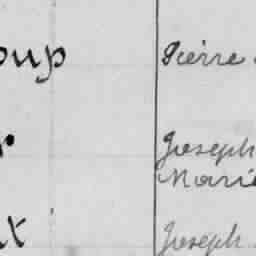 oup Pierre
r Joseph
Marie
x Joseph